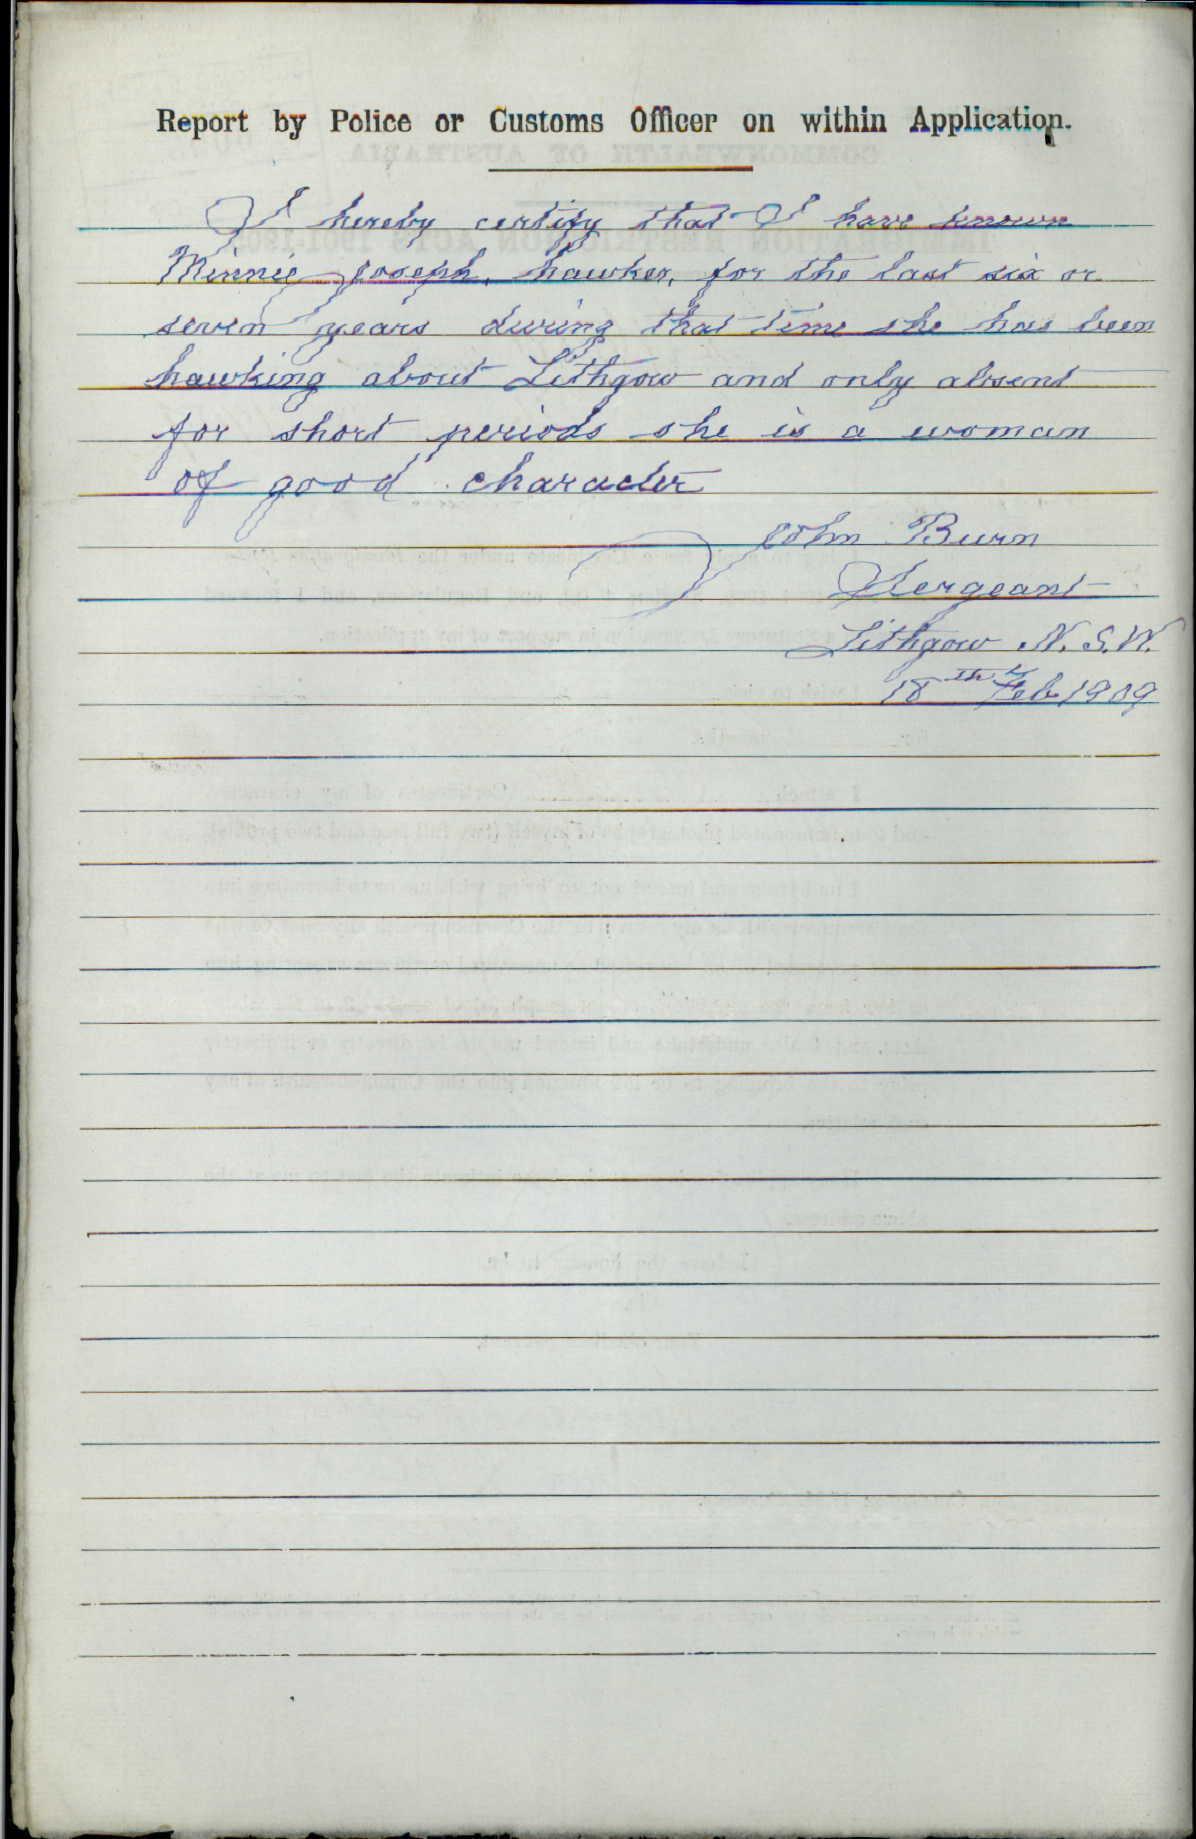 Report by Police or Customs Officer on within Application.
I hereby certify that I have known
Minnie Joseph, hawker, for the last six or
seven years during that time she has been
hawking about Lithgow and only absent
for short periods she is a woman
of good character
John Burn
Sergeant
Lithgow N.S.W.
18th Feb 1909